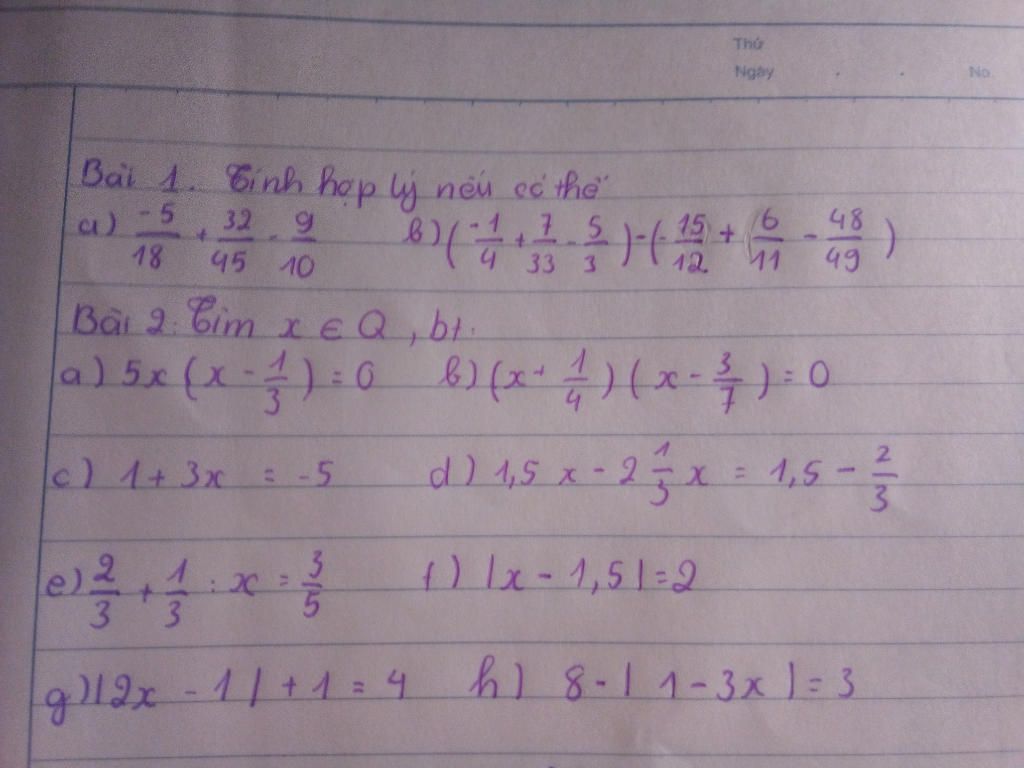 Thứ
Ngày . . No.
Bài 1. Tính hợp lý nếu có thể
a) -5/18 + 32/45 - 9/10 b) (-1/4 + 7/33 - 5/3) - (-15/12 + 6/11 - 48/49)
Bài 2: Tìm x ∈ Q, bt.
a) 5x (x - 1/3) = 0 b) (x + 1/4) (x - 3/7) = 0
c) 1 + 3x = -5 d) 1,5 x - 2 1/3 x = 1,5 - 2/3
e) 2/3 + 1/3 : x = 3/5 f) |x - 1,5| = 2
g) |2x - 1| + 1 = 4 h) 8 - |1 - 3x| = 3